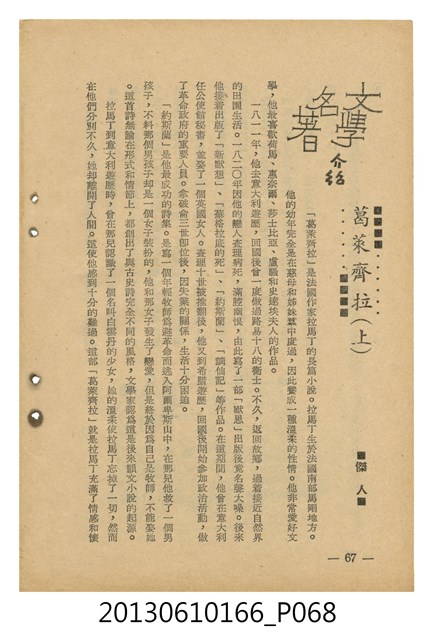 文學名著介紹
葛萊齊拉(上)
■傑人■
「葛萊齊拉」是法國作家拉馬丁的長篇小說。拉馬丁生於法國南部馬剛地方。
他的幼年完全是在慈母和姊妹羣中度過,因此養成一種溫柔的性情。他非常愛好文
學,他最喜歡荷馬、惠奈爾、莎士比亞、盧騷和史達埃夫人的作品。
一八一一年,他去意大利遊歷,回國後曾一度做過路易十八的衞士。不久,返回故鄉,過着接近自然界
的田園生活。一八二〇年因他的戀人查理病死,滿腔幽恨,由此寫了一部「默思」出版後竟名聲大噪。後來
他接着出版了「新默想」、「蘇格拉底的死」、「約斯蘭」、「謫仙記」等作品。在這期間,他曾在意大利
任公使館秘書,並娶了一個英國女人。查理十世被推翻後,他又到希臘遊歷,回國後開始參加政治活動,做
了革命政府的重要人員。拿破崙三世卽位後,因失業的關係,生活十分困迫。
「約斯蘭」是他最成功的詩集。是寫一個年輕牧師爲避革命而逃入阿爾卑斯山中,在那兒他救了一個男
孩子,不料那個男孩子却是一個女子裝扮的,他和那女子發生了戀愛,但是終於因爲自己是牧師,不能娶她
。這首詩無論在形式和情節上,都創出了與古史詩完全不同的風格,文學家認爲這是後來韻文小說的起源。
拉馬丁到意大利遊歷時,曾在那兒認識了一個名叫白雲丹的少女,她的溫柔使拉馬丁忘掉了一切,然而
在他們分別不久,她却離開了人間。這使他感到十分的難過。這部「葛萊齊拉」就是拉馬丁充滿了情感和懷
— 67 —
20130610166_P068